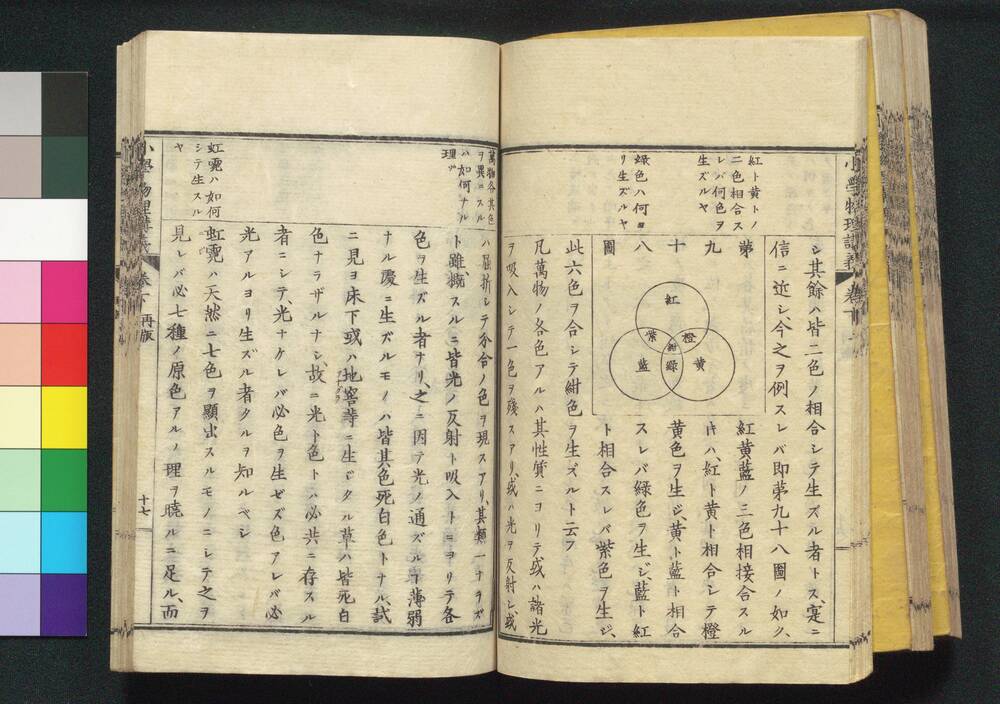 小學物理講義 卷下
紅ト黄トノ
二色相合ス
レバ何色ヲ
生ズルヤ
綠色ハ何ヨ
リ生ズルヤ
シ其餘ハ皆二色ノ相合シテ生ズル者トス、寔ニ
信ニ近シ、今之ヲ例スレバ即第九十八圖ノ如ク、
紅黄藍ノ三色相接合スル
第九十八圖
紅
紫
橙
紺
藍
綠
黄
キハ、紅ト黄ト相合シテ橙
黄色ヲ生ジ黄ト藍ト相合
スレバ綠色ヲ生ジ、藍ト紅
ト相合スレバ紫色ヲ生ジ、
此六色ヲ合シテ紺色ヲ生ズルト云フ
凡萬物ノ各色アルハ其性質ニヨリテ或ハ諸光
ヲ吸入シテ一色ヲ殘スアリ、或ハ光ヲ反射シ、或
萬物各其色
ヲ異ニスル
ハ如何ナル
理ゾ
虹霓ハ如何
シテ生スル
ヤ
ハ屈折シテ分合ノ色ヲ現スアリ、其類一ナラズ
ト雖、概スルニ皆光ノ反射ト吸入トニヨリテ各
色ヲ生ズル者ナリ、之ニ因テ光ノ通ズルヿ薄弱
ナル處ニ生ズルモノハ皆其色死白色トナル試
ニ見ヨ床下或ハ地窖等ニ生ジタル草ハ皆死白
色ナラザルナシ、故ニ光ト色トハ必共ニ存スル
者ニシテ、光ナケレバ必色ヲ生ゼズ色アレバ必
光アルヨリ生ズル者タルヲ知ルベシ
虹霓ハ天然ニ七色ヲ顯出スルモノニシテ之ヲ
見レバ必七種ノ原色アルノ理ヲ曉ルニ足ル、而
小學物理講義 卷下 再版
十七